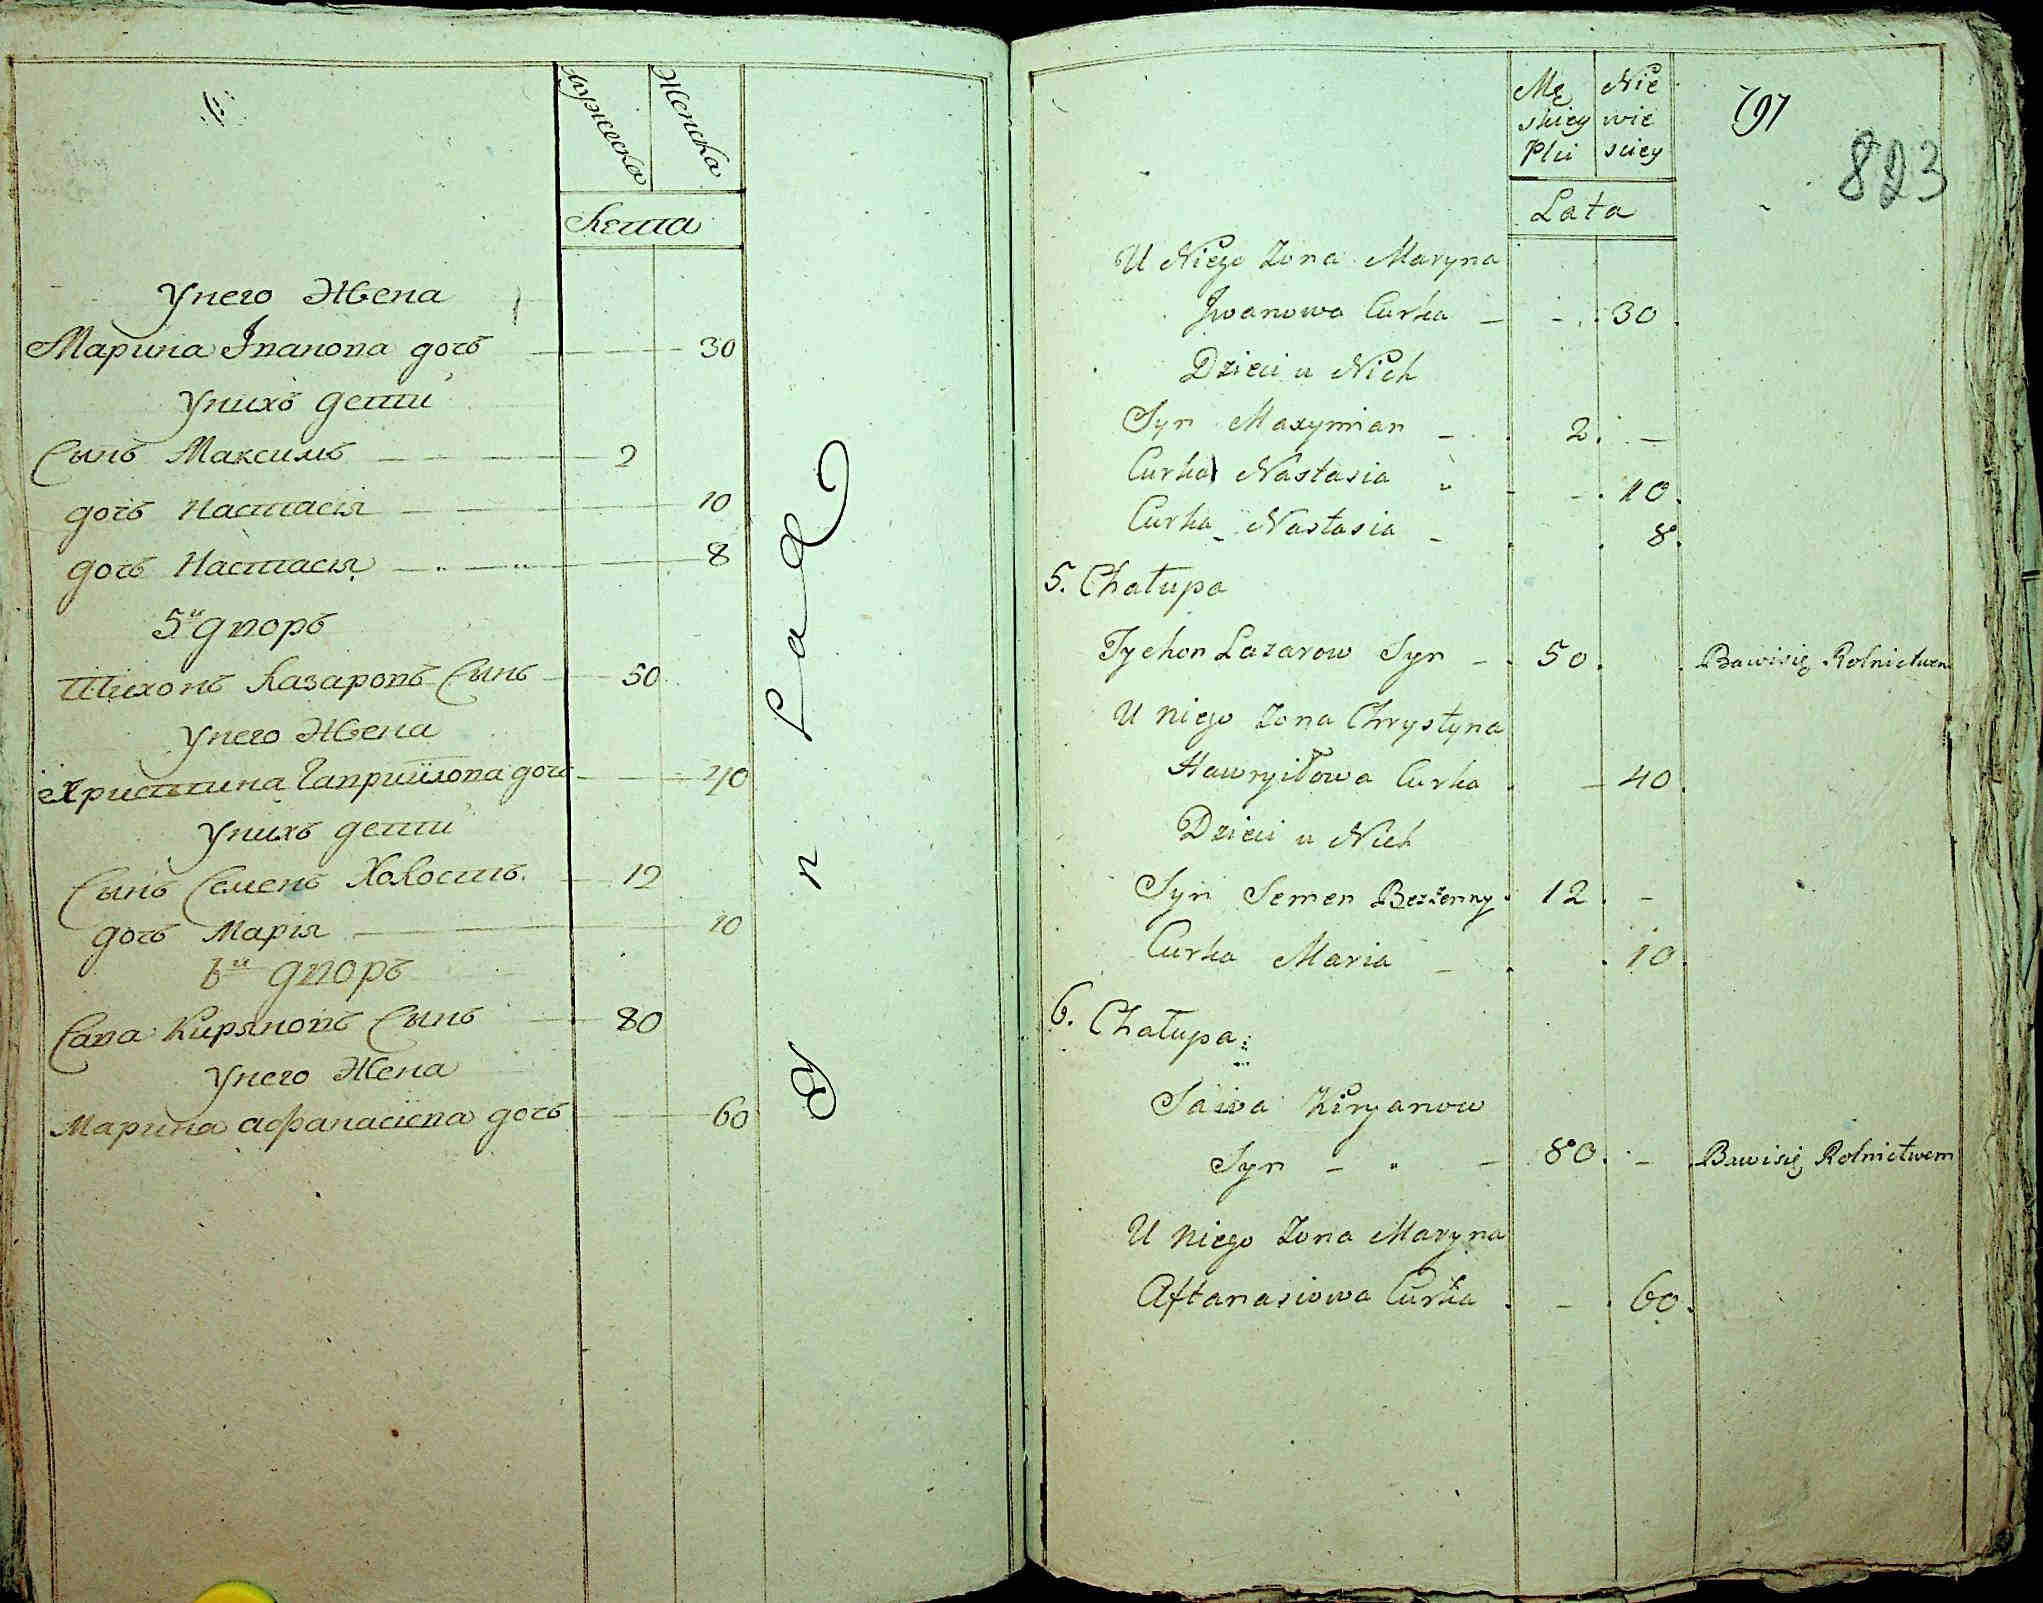 Мужеска
Женска
Лета
У него Жена
Марина Iванова дочь 30
У нихъ дети
Сынъ Максимъ 2
дочь Настасiя 10
дочь Настасiя 8
5й дворъ
Тихонъ Лазаровъ Сынъ 50
У него Жена
Христина Гавриилова дочь 40
У нихъ дети
Сынъ Семенъ Холостъ 12
дочь Марiя 10
6й дворъ
Сава Кирановъ Сынъ 80
У него Жена
Марина афанасиева дочь 60
Męskiey Płci
Niewiesciey
Lata
797
823
U Niego Zona Maryna
Jwanowa Curka 30
Dzieci u Nich
Syn Maxymian 2
Curka Nastasia 10
Curka Nastasia 8
5. Chałupa
Tychon Lazarow Syn 50 Bawisię Rolnictwem
U niego Zona Chrystyna
Hawryiłowa Curka 40
Dzieci u Nich
Syn Semen Bezżenny 12
Curka Maria 10
6. Chałupa
Sawa Kiryanow
Syn 80 Bawisię Rolnictwem
U niego Zona Maryna
Aftanasiowa Curka 60